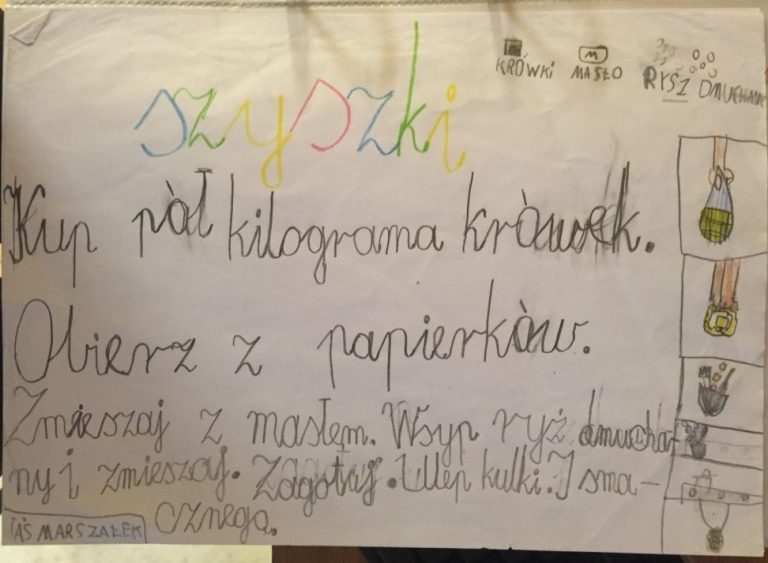 KRÓWKI MASŁO RYSZ DMUCHANY
szyszki
Kup pòł kilograma kròwek.
Obierz z papierkòw.
Zmieszaj z masłem. Wsyp ryż dmucha-
ny i zmieszaj. Zagotuj. Ulep kulki. I sma-
cznego.
JAŚ MARSZAŁEK